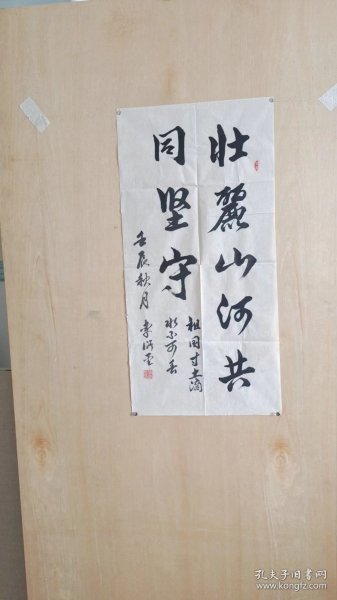 壮麗山河共
同坚守
祖国寸土滴
水不可丢
壬辰秋月
孔夫子旧书网
www.kongfz.com